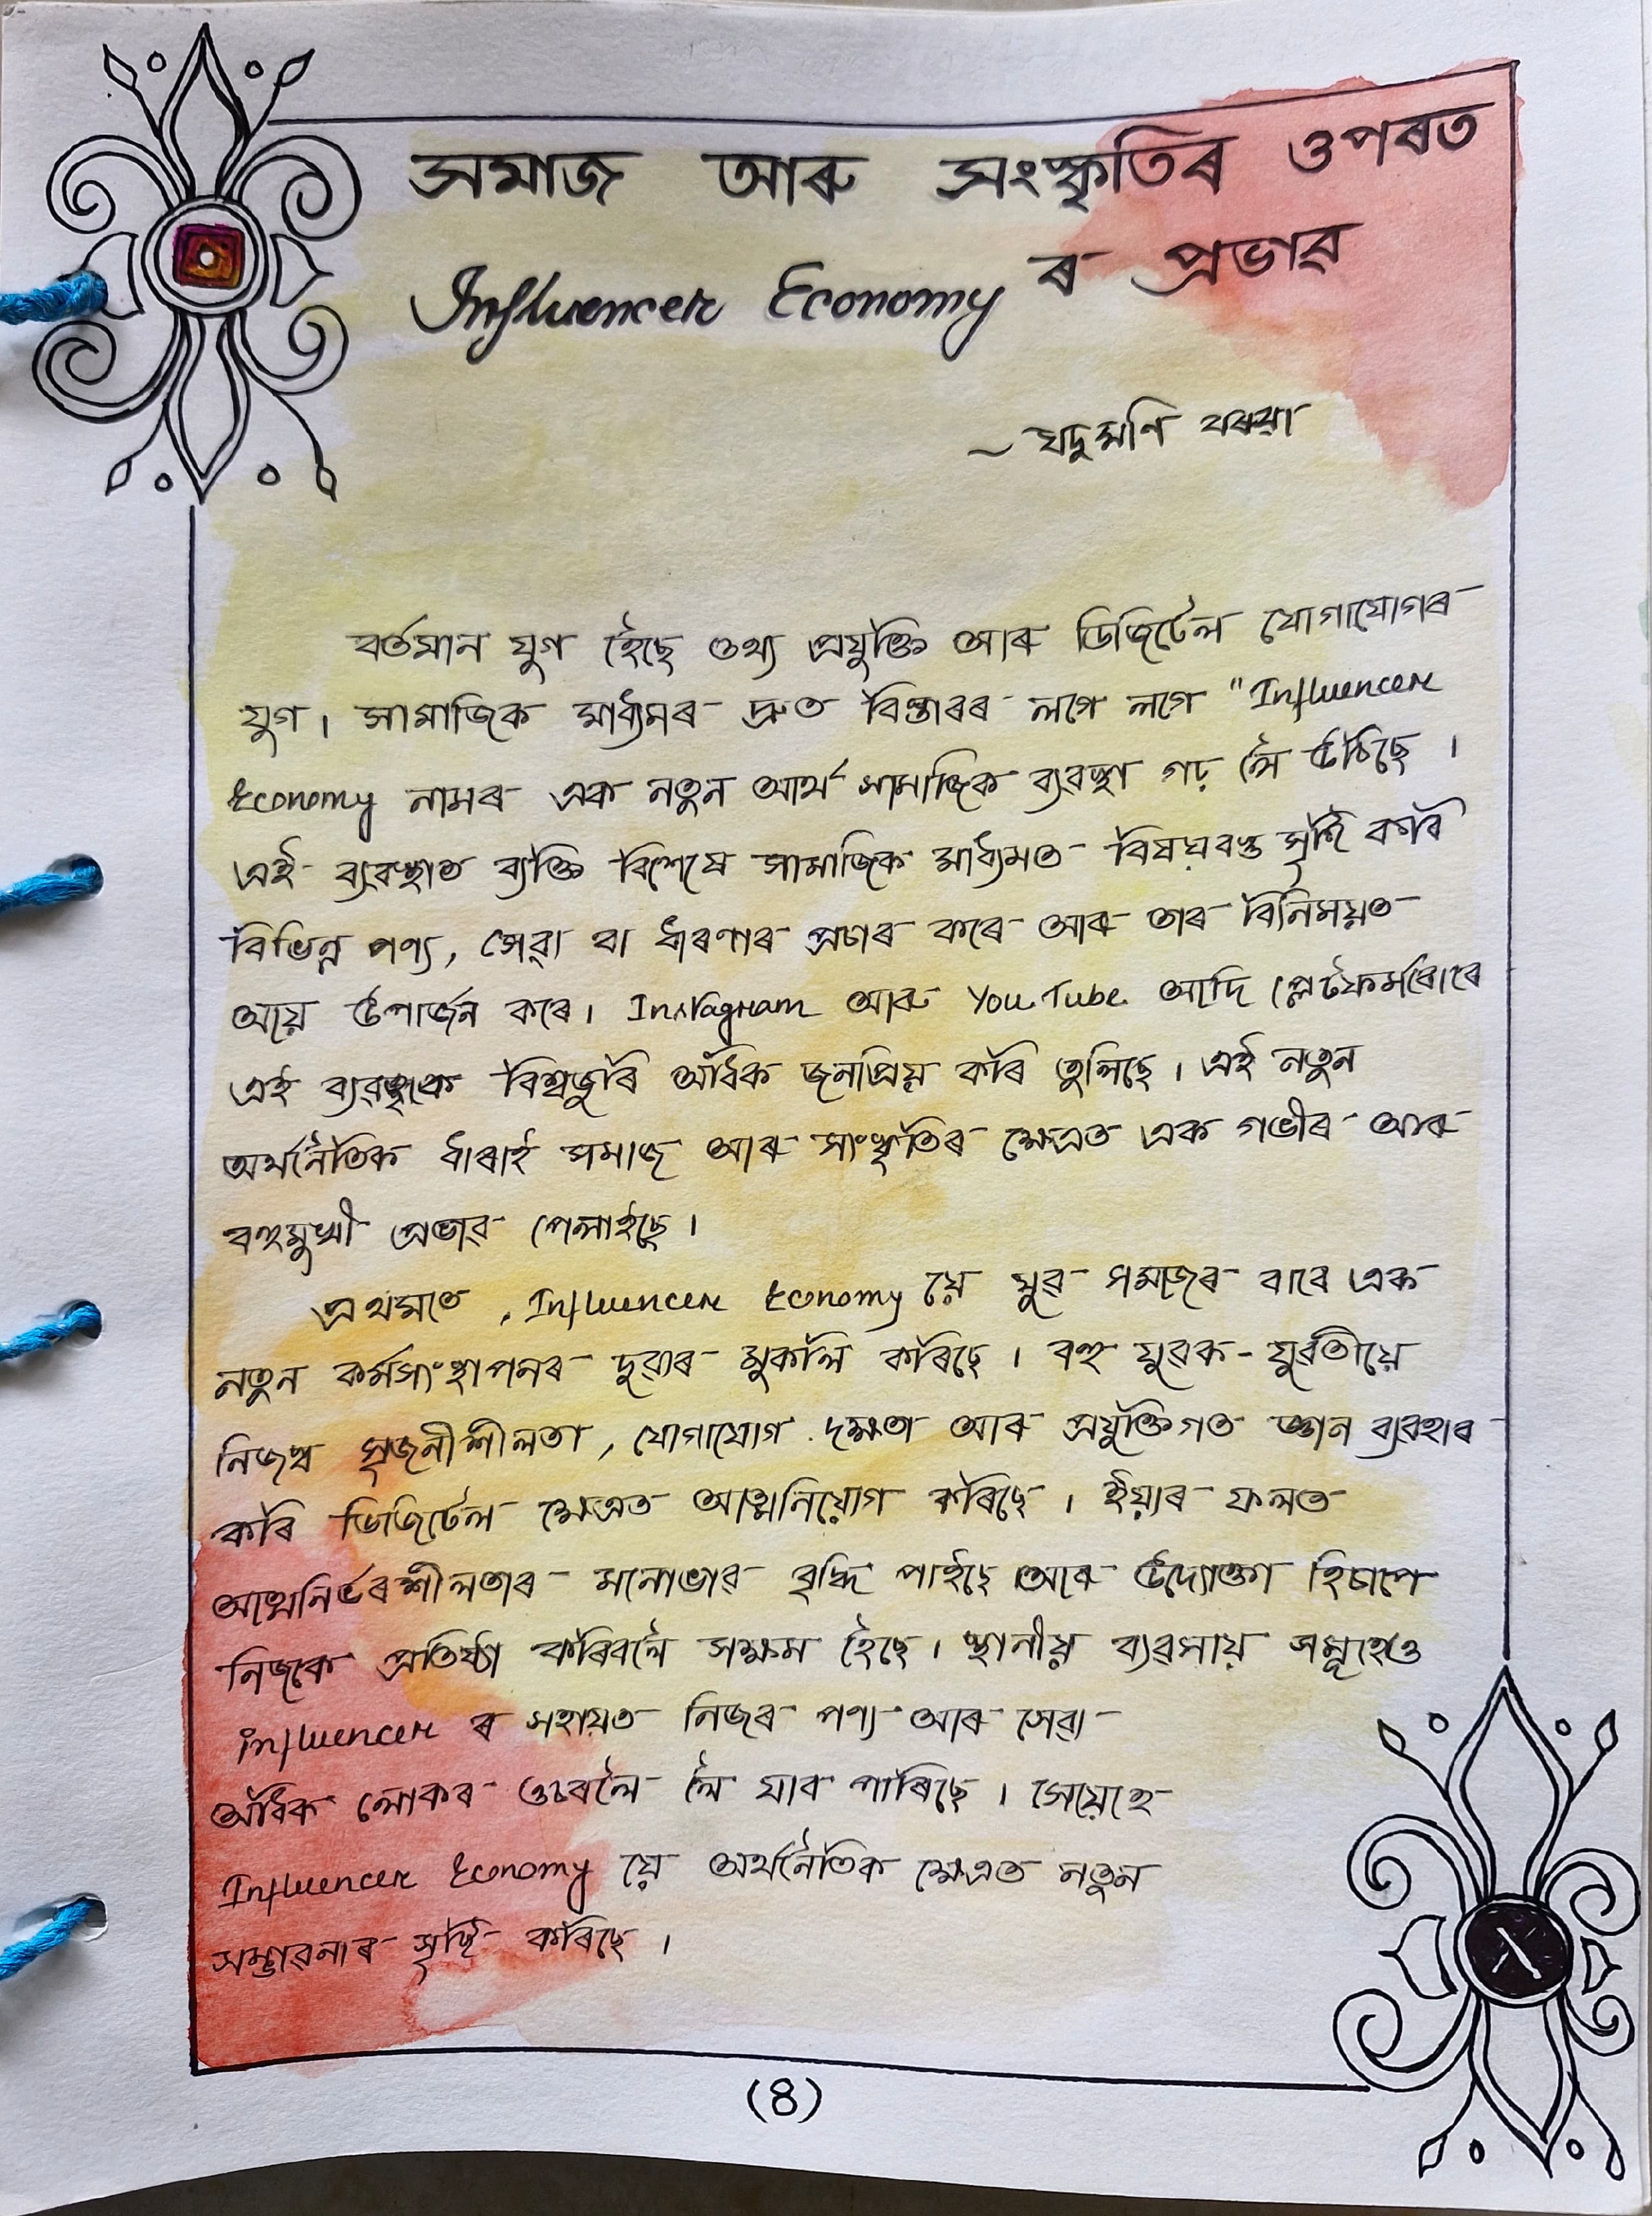 সমাজ আৰু সংস্কৃতিৰ ওপৰত
Influencer Economy ৰ প্ৰভাৱ
~ যদুমণি বৰুৱা
বৰ্তমান যুগ হৈছে তথ্য প্ৰযুক্তি আৰু ডিজিটেল যোগাযোগৰ
যুগ। সামাজিক মাধ্যমৰ দ্ৰুত বিস্তাৰৰ লগে লগে "Influencer
Economy নামৰ এক নতুন আৰ্থ সামাজিক ব্যৱস্থা গঢ় লৈ উঠিছে।
এই ব্যৱস্থাত ব্যক্তি বিশেষে সামাজিক মাধ্যমত বিষয়বস্তু সৃষ্টি কৰি
বিভিন্ন পণ্য, সেৱা বা ধাৰণাৰ প্ৰচাৰ কৰে আৰু তাৰ বিনিময়ত
আয় উপাৰ্জন কৰে। Instagram আৰু YouTube আদি প্লেটফৰ্মবোৰে
এই ব্যৱস্থাক বিশ্বজুৰি অধিক জনপ্ৰিয় কৰি তুলিছে। এই নতুন
অৰ্থনৈতিক ধাৰাই সমাজ আৰু সংস্কৃতিৰ ক্ষেত্ৰত এক গভীৰ আৰু
বহুমুখী প্ৰভাৱ পেলাইছে।
প্ৰথমতে, Influencer Economy য়ে যুৱ সমাজৰ বাবে এক
নতুন কৰ্মসংস্থাপনৰ দুৱাৰ মুকলি কৰিছে। বহু যুৱক-যুৱতীয়ে
নিজস্ব সৃজনীশীলতা, যোগাযোগ দক্ষতা আৰু প্ৰযুক্তিগত জ্ঞান ব্যৱহাৰ
কৰি ডিজিটেল ক্ষেত্ৰত আত্মনিয়োগ কৰিছে। ইয়াৰ ফলত
আত্মনিৰ্ভৰশীলতাৰ মনোভাৱ বৃদ্ধি পাইছে আৰু উদ্যোক্তা হিচাপে
নিজকে প্ৰতিষ্ঠা কৰিবলৈ সক্ষম হৈছে। স্থানীয় ব্যৱসায় সমূহেও
influencer ৰ সহায়ত নিজৰ পণ্য আৰু সেৱা
অধিক লোকৰ ওচৰলৈ লৈ যাব পাৰিছে। সেয়েহে
Influencer Economy য়ে অৰ্থনৈতিক ক্ষেত্ৰত নতুন
সম্ভাৱনাৰ সৃষ্টি কৰিছে।
(8)